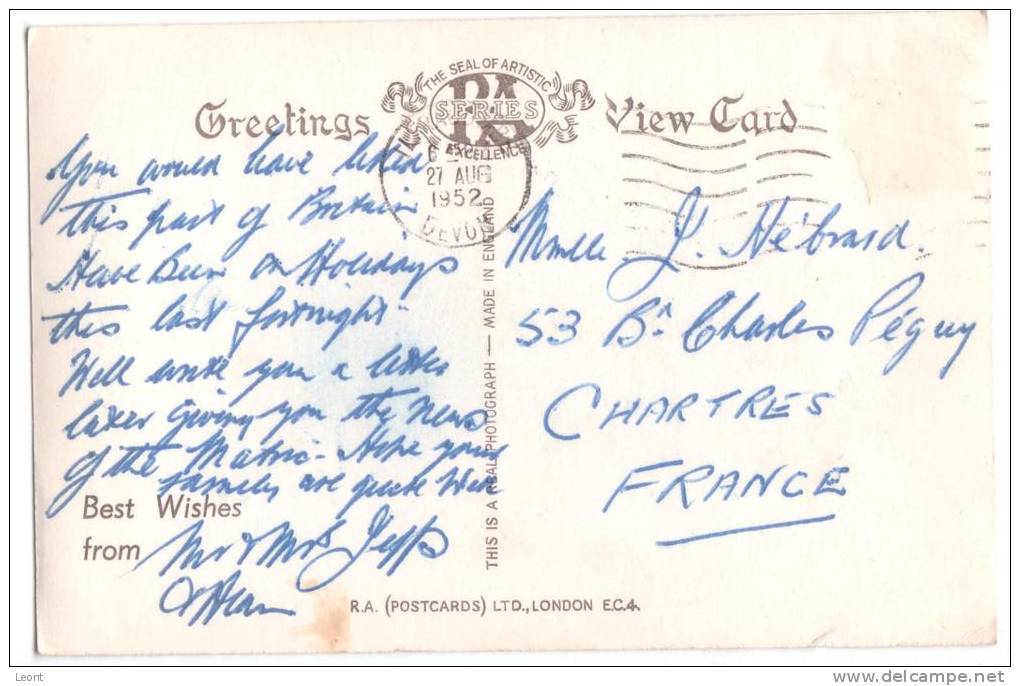 THE SEAL OF ARTISTIC
RA
SERIES
EXCELLENCE
Greetings
View Card
27 AUG
1952
DEVON
You would have liked
this part of Britain
Have Been on Holidays
this last fortnight
Will write you a letter
later giving you the News
of the Matric - Hope your
family are quite Well
Best Wishes
from
Mr & Mrs Jepp
& Alan
THIS IS A REAL PHOTOGRAPH — MADE IN ENGLAND
Mmelle J. Hébrard.
53 Bd Charles Péguy
CHARTRES
FRANCE
R.A. (POSTCARDS) LTD., LONDON E.C.4.
Leont
www.delcampe.net